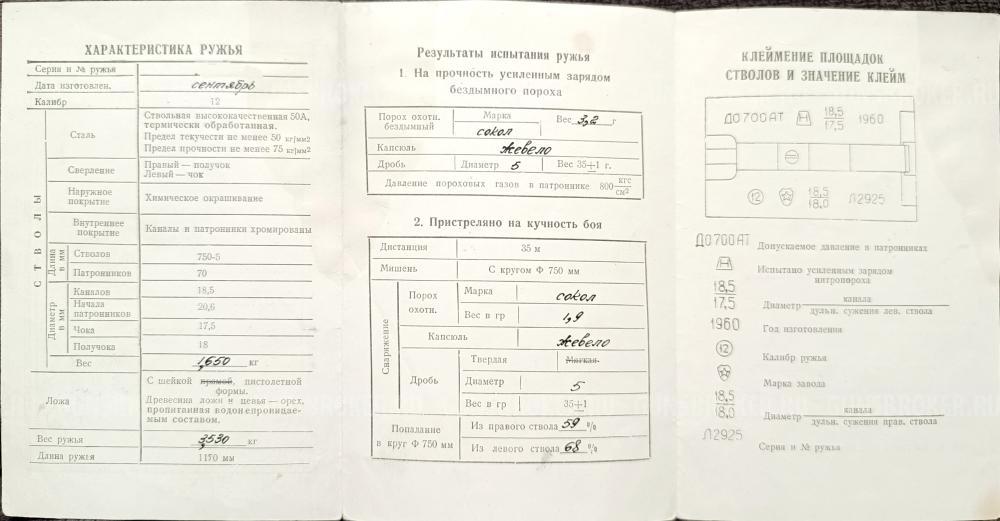 ХАРАКТЕРИСТИКА РУЖЬЯ
Серия и № ружья
Дата изготовлен. сентябрь
Калибр 12
СТВОЛЫ
Сталь
Ствольная высококачественная 50А,
термически обработанная.
Предел текучести не менее 50 кг/мм2
Предел прочности не менее 75 кг/мм2
Сверление
Правый — получок
Левый — чок
Наружное
покрытие
Химическое окрашивание
Внутреннее
покрытие
Каналы и патронники хромированы
Длина в мм
Стволов 750-5
Патронников 70
Диаметр в мм
Каналов 18,5
Начала
патронников
20,6
Чока 17,5
Получока 18
Вес 1,650 кг
Ложа
С шейкой прямой, пистолетной
формы.
Древесина ложи и цевья — орех,
пропитанная водонепроницае-
мым составом.
Вес ружья 3,530 кг
Длина ружья 1170 мм
Результаты испытания ружья
1. На прочность усиленным зарядом
бездымного пороха
Порох охотн.
бездымный
Марка
сокол
Вес 3,2 г
Капсюль жевело
Дробь Диаметр 5 Вес 35±1 г.
Давление пороховых газов в патроннике 800 кгс/см2
2. Пристреляно на кучность боя
Дистанция 35 м
Мишень С кругом Ф 750 мм
Снаряжение
Порох
охотн.
Марка сокол
Вес в гр 1,9
Капсюль жевело
Дробь
Твердая Мягкая
Диаметр 5
Вес в гр 35±1
Попадание
в круг Ф 750 мм
Из правого ствола 59 %
Из левого ствола 68 %
КЛЕЙМЕНИЕ ПЛОЩАДОК
СТВОЛОВ И ЗНАЧЕНИЕ КЛЕЙМ
ДО700АТ Н 18,5/17,5 1960
12 18,5/18,0 Л2925
ДО700АТ Допускаемое давление в патронниках
Н Испытано усиленным зарядом
нитропороха
18,5/17,5 Диаметр канала/дульн. сужения лев. ствола
1960 Год изготовления
12 Калибр ружья
Марка завода
18,5/18,0 Диаметр канала/дульн. сужения прав. ствола
Л2925 Серия и № ружья